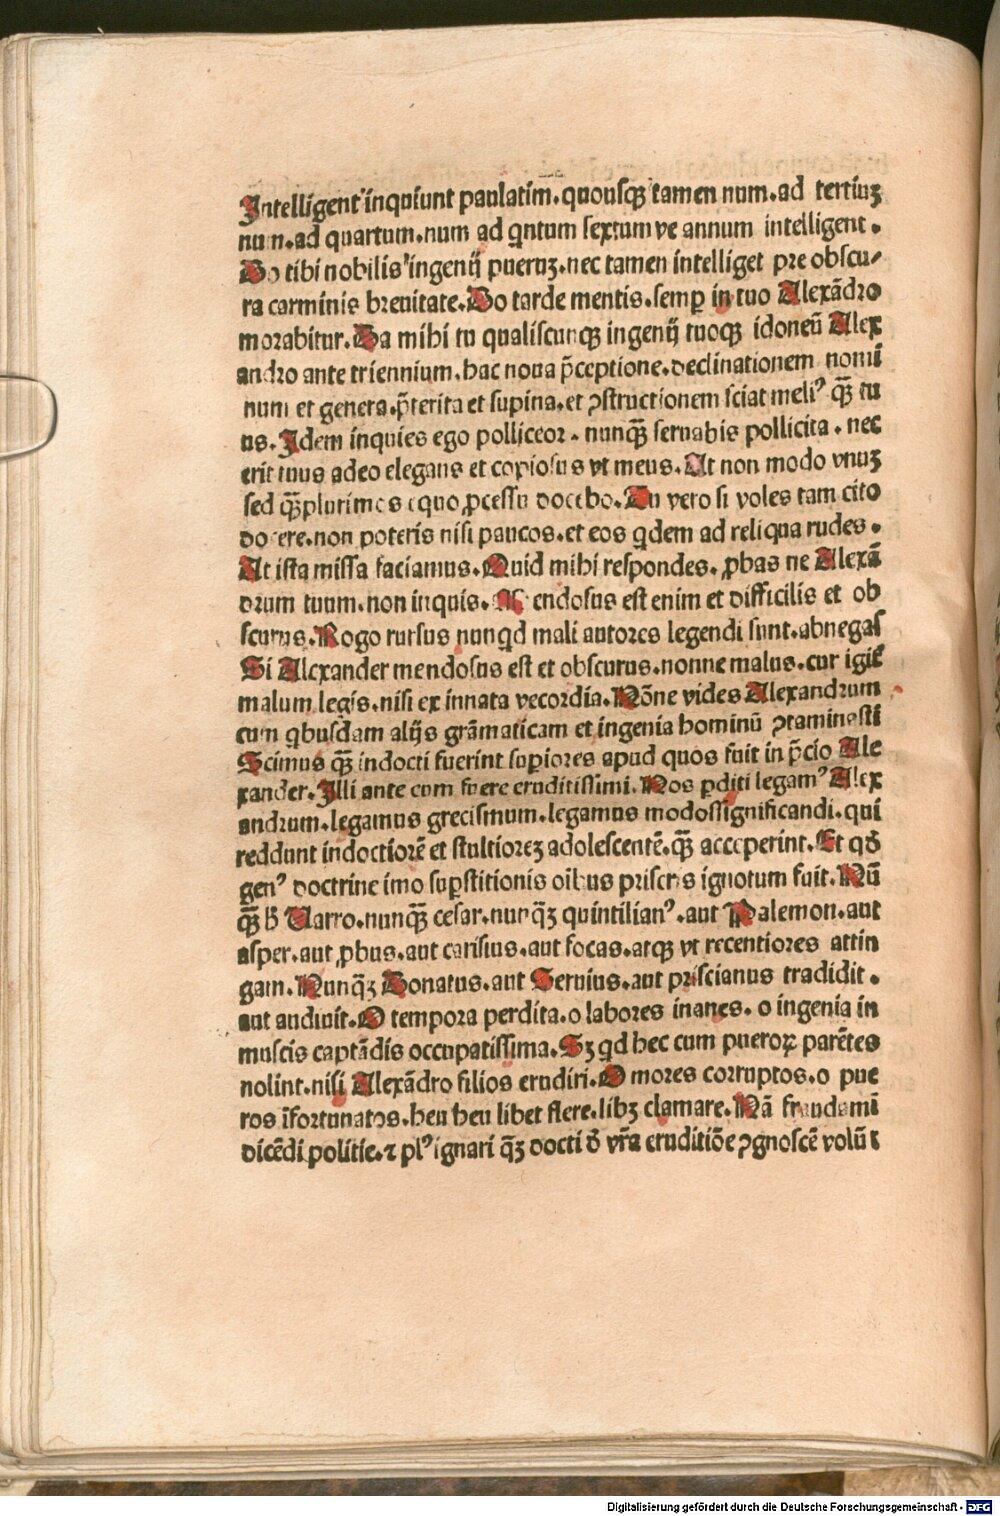 Intelligent inquiunt paulatim. quousqꝫ tamen num. ad tertiuꝫ
num. ad quartum. num ad qntum sextum ve annum intelligent.
Do tibi nobilis ingenij pueruꝫ. nec tamen intelliget pre obscu/
ra carminis breuitate. Do tarde mentis. semꝑ in tuo Alexãdro
morabitur. Da mihi tu qualiscunqꝫ ingenij tuoqꝫ idoneũ Alex
andro ante triennium. hac noua p̃ceptione. declinationem nomi
num et genera. p̃terita et supina. et ꝯstructionem sciat meliꝰ qꝫ̃ tu
us. Idem inquies ego polliceor. nunqꝫ̃ seruabis pollicita. nec
erit tuus adeo elegans et copiosus vt meus. At non modo vnuꝫ
sed qꝫ̃plurimos equo ꝓcessu docebo. Tu vero si voles tam cito
docere. non poteris nisi paucos. et eos qdem ad reliqua rudes.
At ista missa faciamus. Quid mihi respondes. ꝓbas ne Alexã
drum tuum. non inquis. Mendosus est enim et difficilis et ob
scurus. Rogo rursus nunqd mali autores legendi sunt. abnegas
Si Alexander mendosus est et obscurus. nonne malus. cur igit̃
malum legis. nisi ex innata vecordia. Nõne vides Alexandrum
cum qbusdam alijs grãmaticam et ingenia hominũ ꝯtaminasti
Scimus qꝫ̃ indocti fuerint suꝑiores apud quos fuit in p̃cio Ale
xander. Illi ante eum fuere eruditissimi. Nos ꝑditi legamꝰ Alex
andrum. legamus grecismum. legamus modossignificandi. qui
reddunt indoctiorẽ et stultioreꝫ adolescentẽ. qꝫ̃ acceperint. Et qđ
genꝰ doctrine imo suꝑstitionis oibus priscis ignotum fuit. Nũ
qꝫ̃ h̓ Uarro. nunqꝫ̃ cesar. nunqꝫ̃ quintilianꝰ. aut Palemon. aut
asper. aut ꝓbus. aut carisius. aut focas. atqꝫ vt recentiores attin
gam. Nunqꝫ̃ Donatus. aut Seruius. aut priscianus tradidit.
aut audiuit. O tempora perdita. o labores inanes. o ingenia in
muscis captãdis occupatissima. Sꝫ qd hec cum pueroꝝ parẽtes
nolint. nisi Alexãdro filios erudiri. O mores corruptos. o pue
ros ĩfortunatos. heu heu libet flere. libꝫ clamare. Nã fraudami
dicẽdi politie. ⁊ plꝰ ignari qꝫ̃ docti đ vr̃a eruditiõe ꝯgnoscẽ volũt
Digitalisierung gefördert durch die Deutsche Forschungsgemeinschaft - DFG